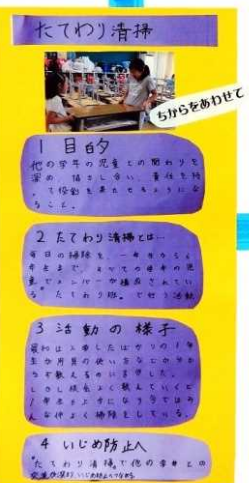 たてわり清掃
ちからをあわせて
1 目的
他の学年の児童との関わりを
深め、協力し合い、責任を持っ
て役割を果たせるようにな
ること。
2 たてわり清掃とは…
毎日の掃除を、一年生から六
年生まで、すべての学年の児
童でメンバーが構成されてい
る。"たてわり班"で行う活動
3 活動の様子
最初は入学したばかりの1年
生が用具の使い方などが分か
らず教えるのに苦労した。
しかし根気よく教えていくと
1年生が上手になり今ではみ
んな仲よく掃除をしている。
4 いじめ防止へ
"たてわり清掃"で他の学年との